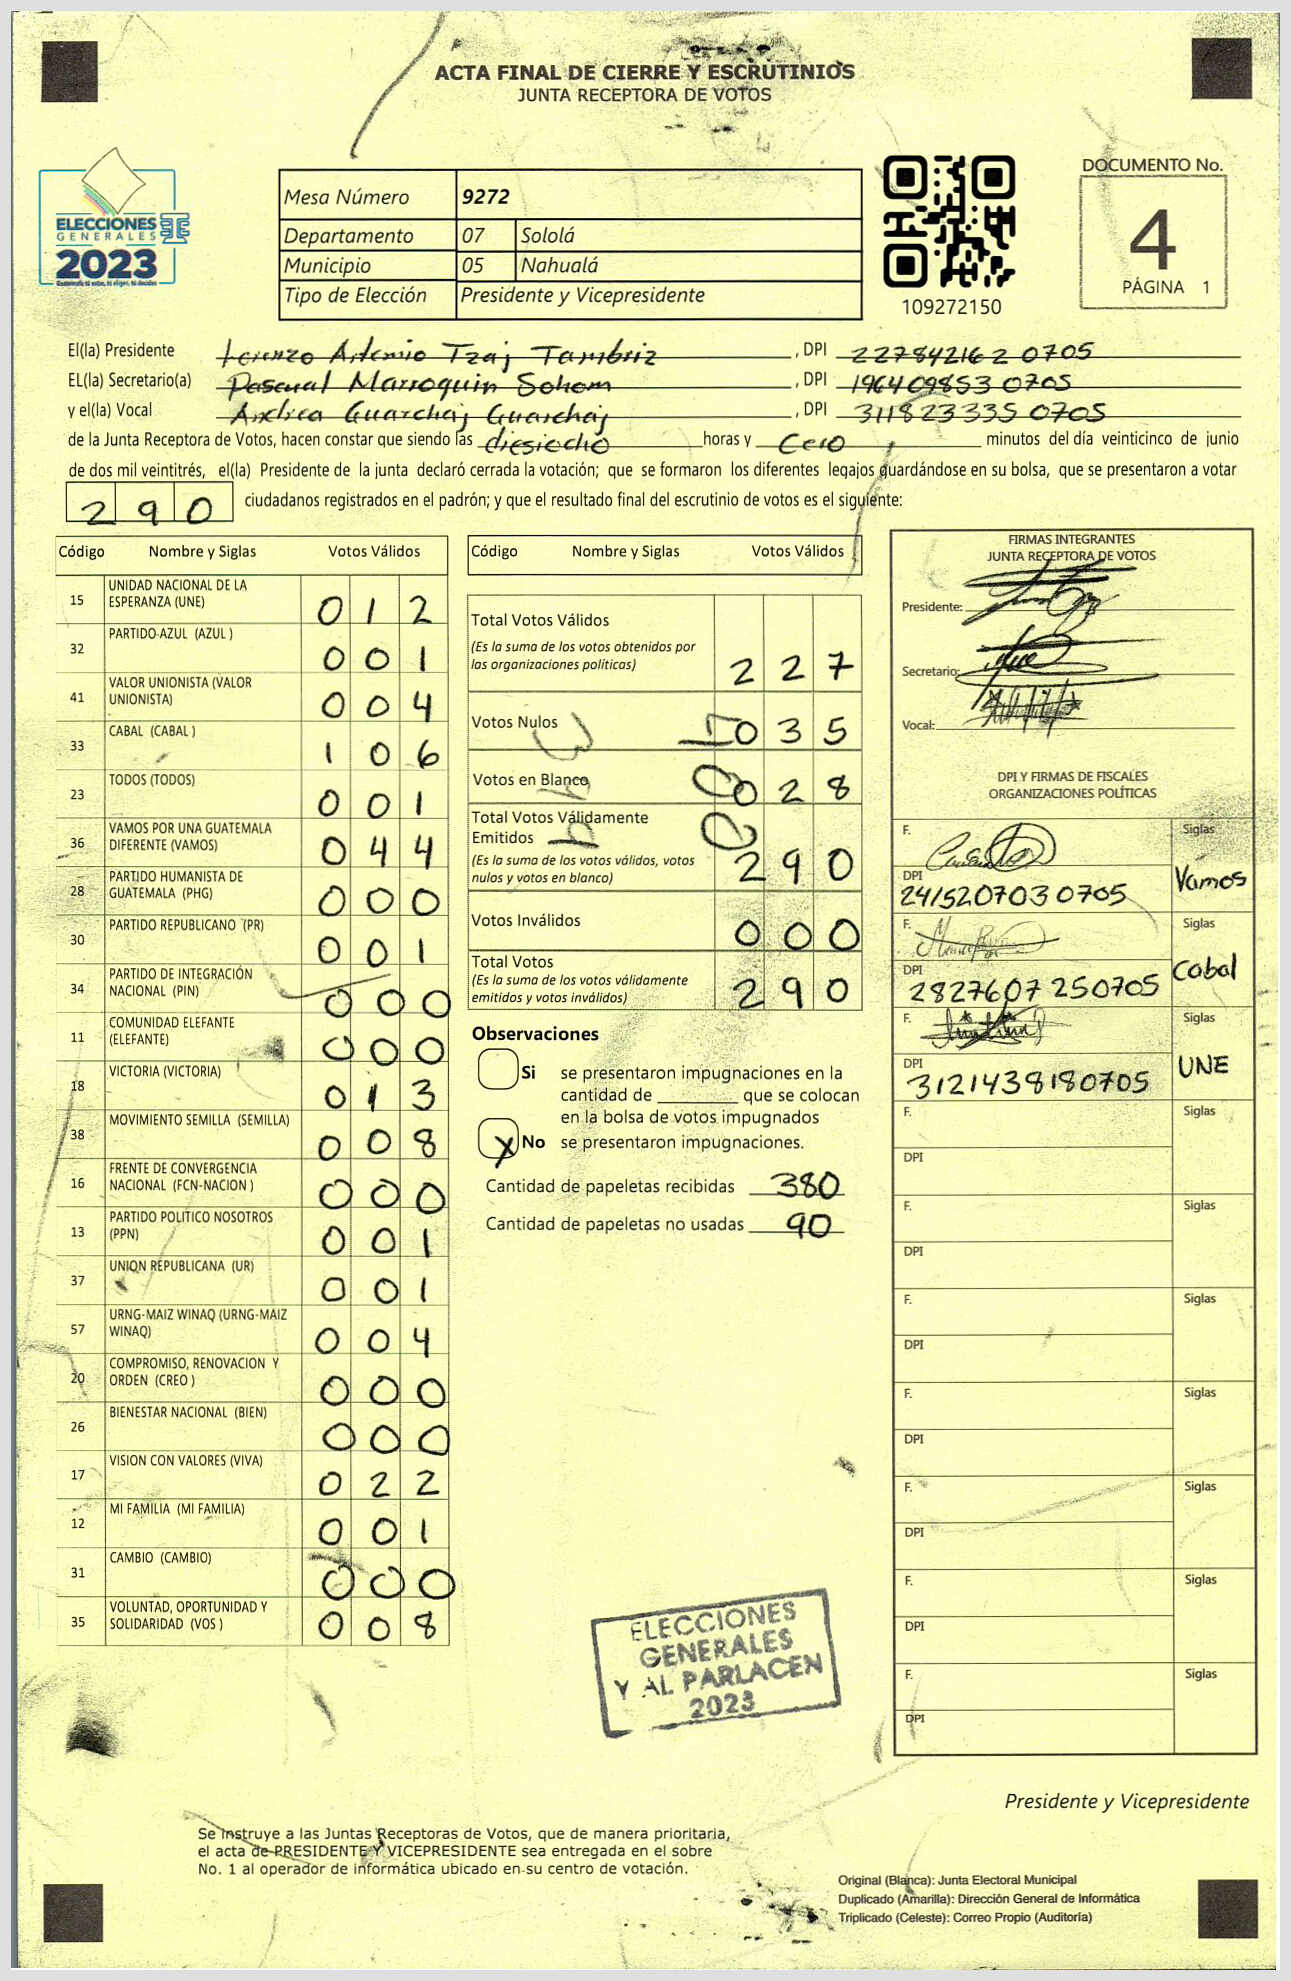 ACTA FINAL DE CIERRE Y ESCRUTINIOS
JUNTA RECEPTORA DE VOTOS
ELECCIONES
GENERALES
2023
Mesa Número 9272
Departamento 07 Sololá
Municipio 05 Nahualá
Tipo de Elección Presidente y Vicepresidente
109272150
DOCUMENTO No.
4
PÁGINA 1
El(la) Presidente Lorenzo Artemio Tzaj Tambriz, DPI 227842162 0705
EL(la) Secretario(a) Pascual Marroquin Sohom, DPI 196409853 0705
y el(la) Vocal Andrea Guarchaj Guarchaj, DPI 311823335 0705
de la Junta Receptora de Votos, hacen constar que siendo las diesiocho horas y Cero minutos del día veinticinco de junio
de dos mil veintitrés, el(la) Presidente de la junta declaró cerrada la votación; que se formaron los diferentes legajos guardándose en su bolsa, que se presentaron a votar
290 ciudadanos registrados en el padrón; y que el resultado final del escrutinio de votos es el siguiente:
Código Nombre y Siglas Votos Válidos
15 UNIDAD NACIONAL DE LA
ESPERANZA (UNE) 012
32 PARTIDO AZUL (AZUL ) 001
41 VALOR UNIONISTA (VALOR
UNIONISTA) 004
33 CABAL (CABAL ) 106
23 TODOS (TODOS) 001
36 VAMOS POR UNA GUATEMALA
DIFERENTE (VAMOS) 044
28 PARTIDO HUMANISTA DE
GUATEMALA (PHG) 000
30 PARTIDO REPUBLICANO (PR) 001
34 PARTIDO DE INTEGRACIÓN
NACIONAL (PIN) 000
11 COMUNIDAD ELEFANTE
(ELEFANTE) 000
18 VICTORIA (VICTORIA) 013
38 MOVIMIENTO SEMILLA (SEMILLA) 008
16 FRENTE DE CONVERGENCIA
NACIONAL (FCN-NACION ) 000
13 PARTIDO POLITICO NOSOTROS
(PPN) 001
37 UNION REPUBLICANA (UR) 001
57 URNG-MAIZ WINAQ (URNG-MAIZ
WINAQ) 004
20 COMPROMISO, RENOVACION Y
ORDEN (CREO ) 000
26 BIENESTAR NACIONAL (BIEN) 000
17 VISION CON VALORES (VIVA) 022
12 MI FAMILIA (MI FAMILIA) 001
31 CAMBIO (CAMBIO) 000
35 VOLUNTAD, OPORTUNIDAD Y
SOLIDARIDAD (VOS ) 008
Código Nombre y Siglas Votos Válidos
Total Votos Válidos
(Es la suma de los votos obtenidos por
las organizaciones políticas) 227
Votos Nulos 035
Votos en Blanco 028
Total Votos Válidamente
Emitidos
(Es la suma de los votos válidos, votos
nulos y votos en blanco) 290
Votos Inválidos 000
Total Votos
(Es la suma de los votos válidamente
emitidos y votos inválidos) 290
Observaciones
Si se presentaron impugnaciones en la
cantidad de ________ que se colocan
en la bolsa de votos impugnados
X No se presentaron impugnaciones.
Cantidad de papeletas recibidas 380
Cantidad de papeletas no usadas 90
ELECCIONES
GENERALES
Y AL PARLACEN
2023
FIRMAS INTEGRANTES
JUNTA RECEPTORA DE VOTOS
Presidente:
Secretario:
Vocal:
DPI Y FIRMAS DE FISCALES
ORGANIZACIONES POLÍTICAS
F. Siglas
DPI Vamos
241520703 0705
F. Siglas
DPI Cabal
2827607 250705
F. Siglas
DPI UNE
3121438180705
F. Siglas
DPI
F. Siglas
DPI
F. Siglas
DPI
F. Siglas
DPI
F. Siglas
DPI
F. Siglas
DPI
F. Siglas
DPI
Presidente y Vicepresidente
Se instruye a las Juntas Receptoras de Votos, que de manera prioritaria,
el acta de PRESIDENTE Y VICEPRESIDENTE sea entregada en el sobre
No. 1 al operador de informática ubicado en su centro de votación.
Original (Blanca): Junta Electoral Municipal
Duplicado (Amarilla): Dirección General de Informática
Triplicado (Celeste): Correo Propio (Auditoría)